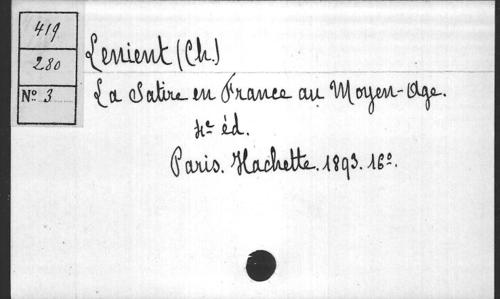 419
280
Nº 3
Lenient (Ch.)
La Satire en France au Moyen-Age.
4e éd.
Paris. Hachette. 1893. 16º.